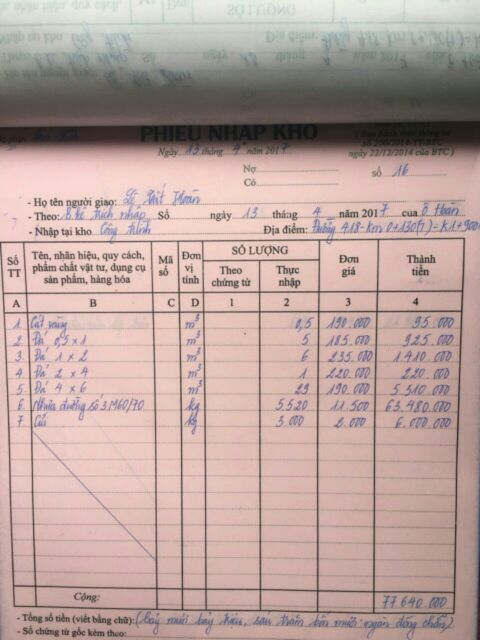 PHIẾU NHẬP KHO
(Ban hành theo thông tư
số 200/2014-TT-BTC
ngày 22/12/2014 của BTC)
Ngày 13 tháng 4 năm 2017
Nợ
số 16
Có
- Họ tên người giao: Lê Hoàn
- Theo: B.kê trích nhập Số ngày 13 tháng 4 năm 2017 của Ô Hoàn
- Nhập tại kho Công trình Địa điểm: Đường 418-Km 0+130(T) - K1+900
Số TT Tên, nhãn hiệu, quy cách, phẩm chất vật tư, dụng cụ sản phẩm, hàng hóa Mã số Đơn vị tính SỐ LƯỢNG Theo chứng từ Thực nhập Đơn giá Thành tiền
A B C D 1 2 3 4
1. Cát vàng m³ 0,5 190.000 95.000
2. Đá 0,5 x 1 m³ 5 185.000 925.000
3. Đá 1 x 2 m³ 6 235.000 1.410.000
4. Đá 2 x 4 m³ 1 220.000 220.000
5. Đá 4 x 6 m³ 29 190.000 5.510.000
6. Nhựa đường số 3 M60/70 kg 5.520 11.500 63.480.000
7. Củi kg 3.000 2.000 6.000.000
Cộng: 77.640.000
- Tổng số tiền (viết bằng chữ): (Bảy mươi bảy triệu, sáu trăm bốn mươi ngàn đồng chẵn)
- Số chứng từ gốc kèm theo: